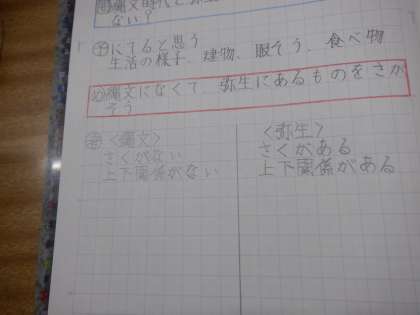 縄文時代と弥生
ない？
予 にてると思う
生活の様子、建物、服そう、食べ物
め 縄文になくて、弥生にあるものをさが
そう
<縄文>
さくがない
上下関係がない
<弥生>
さくがある
上下関係がある